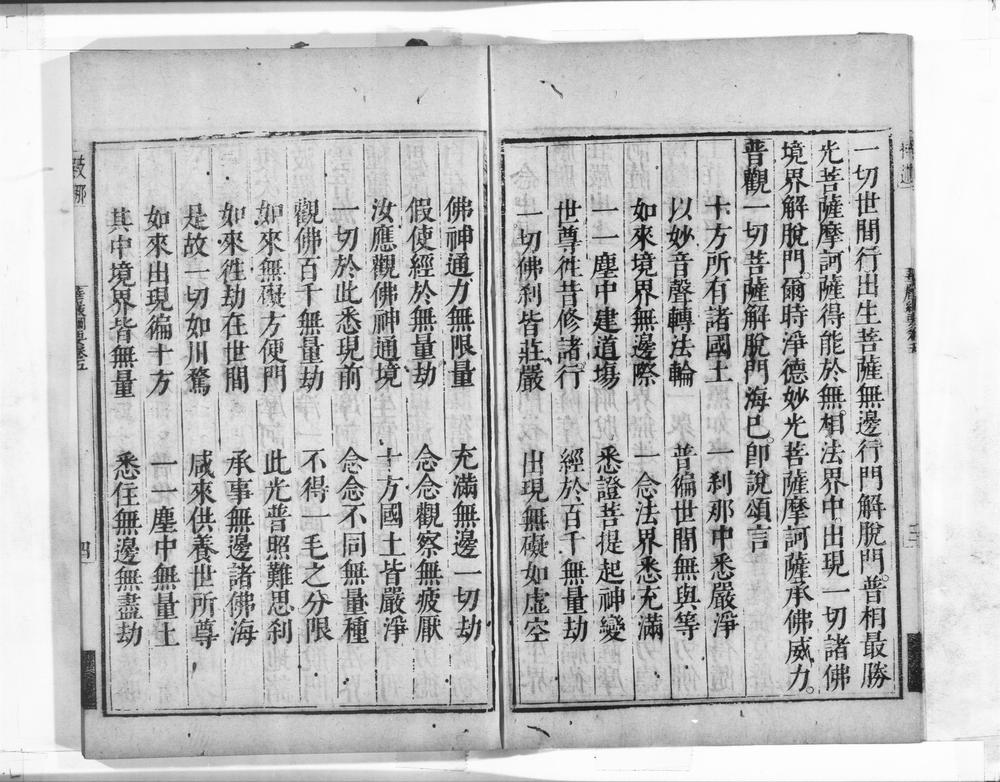 一切世間行出生菩薩無邊行門解脫門。普相最勝
光菩薩摩訶薩得能於無相法界中出現一切諸佛
境界解脫門。爾時淨德妙光菩薩摩訶薩承佛威力。
普觀一切菩薩解脫門海已。卽說頌言
十方所有諸國土　一刹那中悉嚴淨
以妙音聲轉法輪　普徧世間無與等
如來境界無邊際　一念法界悉充滿
一一塵中建道場　悉證菩提起神變
世尊徃昔修諸行　經於百千無量劫
一切佛刹皆莊嚴　出現無礙如虛空
佛神通力無限量　充滿無邊一切劫
假使經於無量劫　念念觀察無疲厭
汝應觀佛神通境　十方國土皆嚴淨
一切於此悉現前　念念不同無量種
觀佛百千無量劫　不得一毛之分限
如來無礙方便門　此光普照難思刹
如來徃劫在世間　承事無邊諸佛海
是故一切如川騖　咸來供養世所尊
如來出現徧十方　一一塵中無量土
其中境界皆無量　悉住無邊無盡劫
四